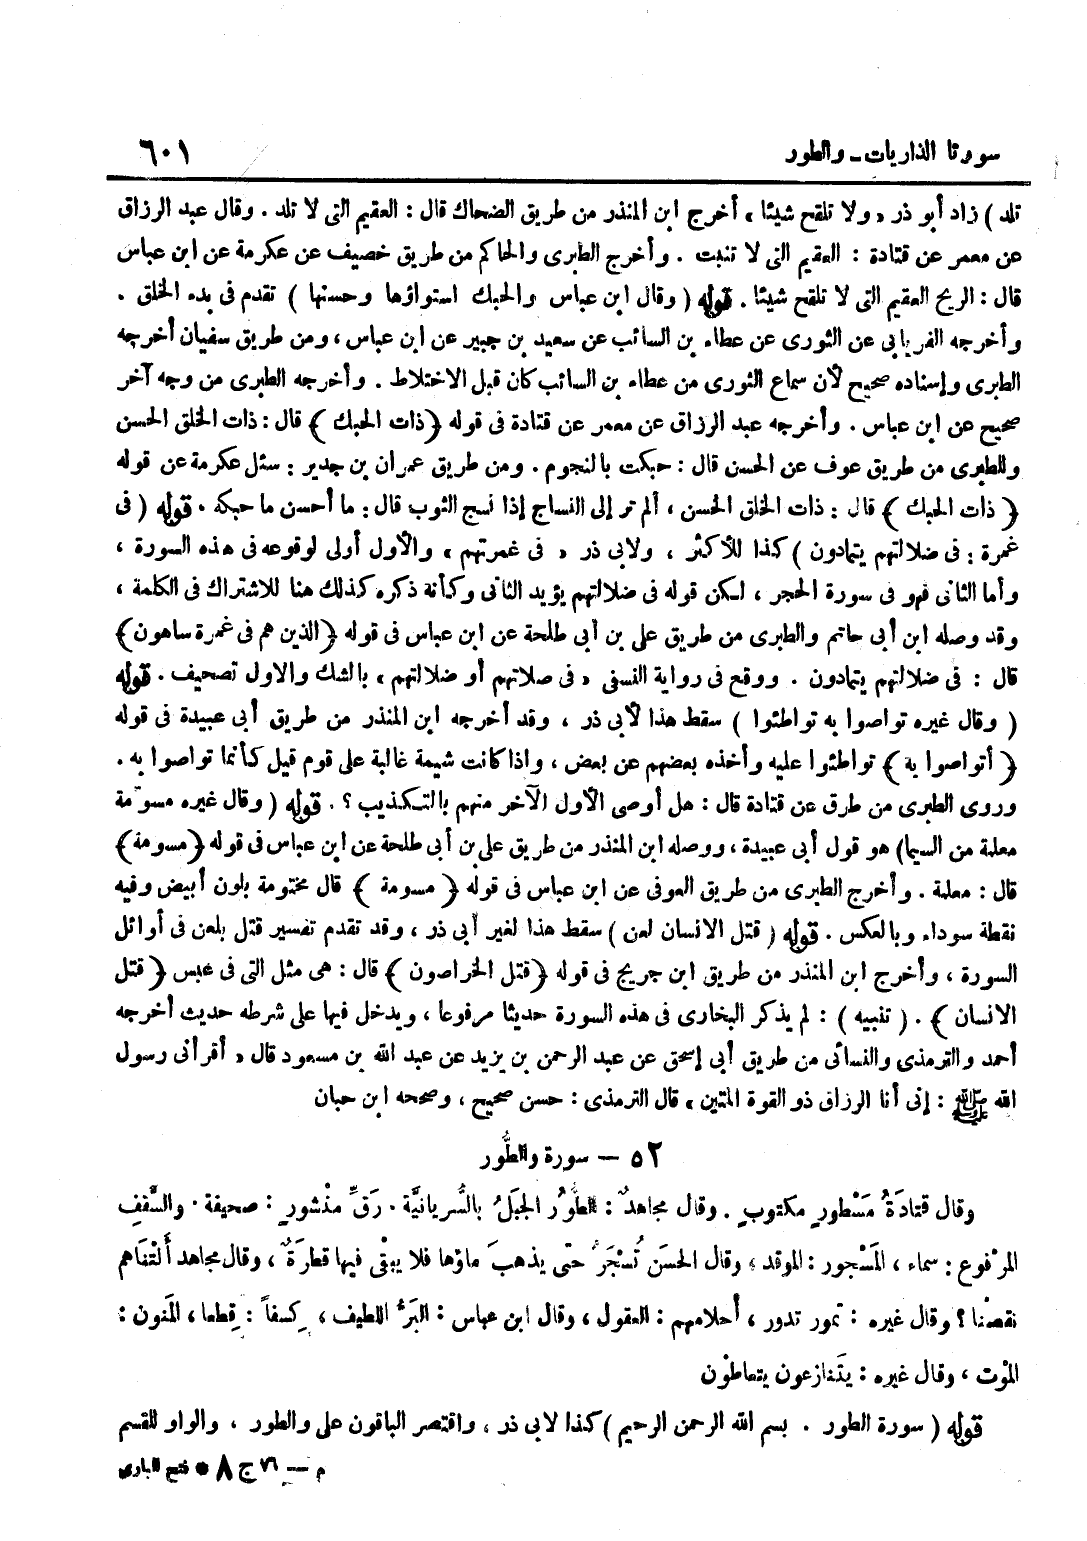 سورتا الذاريات - والطور
٦٠١
تلد ) زاد أبو ذر « ولا تلقح شيئا » أخرج ابن المنذر من طريق الضحاك قال : العقيم التى لا تلد . وقال عبد الرزاق
عن معمر عن قتادة : العقيم التى لا تنبت . وأخرج الطبرى والحاكم من طريق خصيف عن عكرمة عن ابن عباس
قال : الريح العقيم التى لا تلقح شيئا . قوله ( وقال ابن عباس والحبك استواؤها وحسنها ) تقدم فى بدء الخلق .
وأخرجه الفريابى عن الثورى عن عطاء بن السائب عن سعيد بن جبير عن ابن عباس ، ومن طريق سفيان أخرجه
الطبرى وإسناده صحيح لأن سماع الثورى من عطاء بن السائب كان قبل الاختلاط . وأخرجه الطبرى من وجه آخر
صحيح عن ابن عباس . وأخرجه عبد الرزاق عن معمر عن قتادة فى قوله ﴿ ذات الحبك ﴾ قال : ذات الخلق الحسن
وللطبرى من طريق عوف عن الحسن قال : حبكت بالنجوم . ومن طريق عمران بن جدير : سئل عكرمة عن قوله
﴿ ذات الحبك ﴾ قال : ذات الخلق الحسن ، ألم تر إلى النساج إذا نسج الثوب قال : ما أحسن ما حبكه . قوله ( فى
غمرة : فى ضلالتهم يتمادون ) كذا للأكثر ، ولابى ذر « فى غمرتهم » والأول أولى لوقوعه فى هذه السورة ،
وأما الثانى فهو فى سورة الحجر ، لكن قوله فى ضلالتهم يؤيد الثانى وكأنه ذكره كذلك هنا للاشتراك فى الكلمة ،
وقد وصله ابن أبى حاتم والطبرى من طريق على بن أبى طلحة عن ابن عباس فى قوله ﴿ الذين هم فى غمرة ساهون ﴾
قال : فى ضلالتهم يتمادون . ووقع فى رواية النسفى « فى صلاتهم أو ضلالتهم » بالشك والاول تصحيف . قوله
( وقال غيره تواصوا به تواطئوا ) سقط هذا لأبى ذر ، وقد أخرجه ابن المنذر من طريق أبى عبيدة فى قوله
﴿ أتواصوا به ﴾ تواطئوا عليه وأخذه بعضهم عن بعض ، واذا كانت شيمة غالبة على قوم قيل كأنما تواصوا به .
وروى الطبرى من طرق عن قتادة قال : هل أوصى الأول الآخر منهم بالتكذيب ؟ . قوله ( وقال غيره مسوّمة
معلمة من السيما ) هو قول أبى عبيدة ، ووصله ابن المنذر من طريق على بن أبى طلحة عن ابن عباس فى قوله ﴿ مسومة ﴾
قال : معلمة . وأخرج الطبرى من طريق العوفى عن ابن عباس فى قوله ﴿ مسومة ﴾ قال مختومة بلون أبيض وفيه
نقطة سوداء وبالعكس . قوله ( قتل الانسان لعن ) سقط هذا لغير أبى ذر ، وقد تقدم تفسير قتل بلعن فى أوائل
السورة ، وأخرج ابن المنذر من طريق ابن جريج فى قوله ﴿ قتل الخراصون ﴾ قال : هى مثل التى فى عبس ﴿ قتل
الانسان ﴾ . ( تنبيه ) : لم يذكر البخارى فى هذه السورة حديثا مرفوعا ، ويدخل فيها على شرطه حديث أخرجه
أحمد والترمذى والنسائى من طريق أبى إسحق عن عبد الرحمن بن يزيد عن عبد الله بن مسعود قال « أقرأنى رسول
الله ﷺ : إنى أنا الرزاق ذو القوة المتين » قال الترمذى : حسن صحيح ، وصححه ابن حبان
٥٢ — سورة والطُّور
وقال قتادَةُ مَسْطورٍ مكتوبٍ . وقال مجاهدٌ : الطُّورُ الجبَلُ بالسُّريانيَّة . رَقٍّ منْشورٍ : صحيفة . والسَّقفِ
المرْفوع : سماء ، المَسْجور : الموقد ، وقال الحسَن تُسْجَرُ حتّى يذهبَ ماؤها فلا يبقٰى فيها قطرَةٌ ، وقال مجاهد أَلتْناهم
نقصْنا ؟ وقال غيره : تمور تدور ، أحلامهم : العقول ، وقال ابن عباس : البَرُّ اللطيف ، كِسفاً : قِطعا ، المَنون :
الموْت ، وقال غيره : يتَنازعون يتعاطوْن
قوله ( سورة الطور . بسم الله الرحمن الرحيم ) كذا لابى ذر ، واقتصر الباقون على والطور ، والواو للقسم
م — ٧٦ ج ٨ * فتح البارى